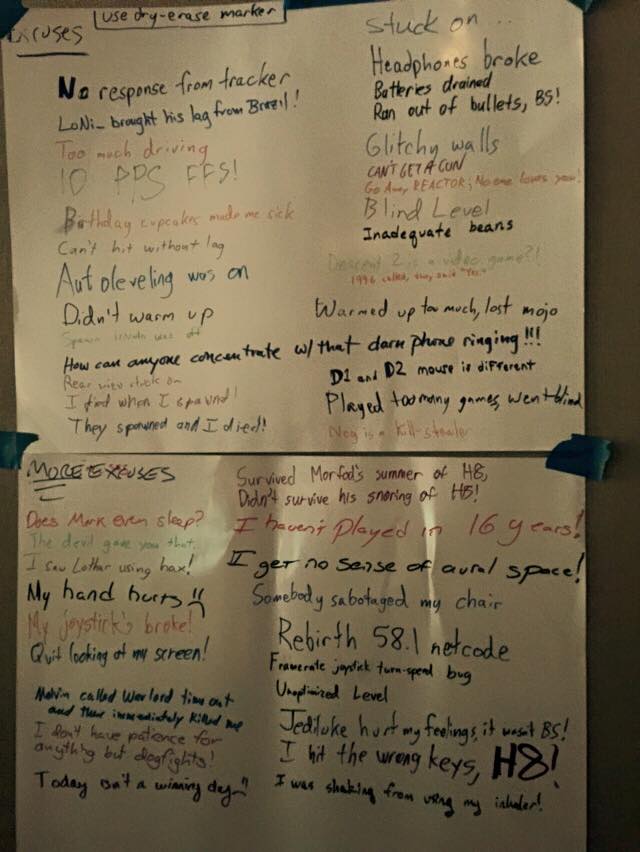 Excuses
use dry-erase marker
No response from tracker
LoNi_ brought his lag from Brazil!
Too much driving
10 PPS FFS!
Birthday cupcakes made me sick
Can't hit without lag
Autoleveling was on
Didn't warm up
Spawn was off
How can anyone concentrate w/ that darn phone ringing!!!
Rear view stuck on
I died when I spawned!
They spawned and I died!
Stuck on...
Headphones broke
Batteries drained
Ran out of bullets, BS!
Glitchy walls
CAN'T GET A GUN
Go Away, REACTOR; No one loves you!
Blind Level
Inadequate beans
Descent 2 is a video game?!
1996 called, they said "Yes."
Warmed up too much, lost mojo
D1 and D2 mouse is different
Played too many games, went blind
Neg is a kill-stealer
MORE EXCUSES
Does Mark even sleep?
The devil gave you that.
I saw Lothar using hax!
My hand hurts!!
My joystick's broke!
Quit looking at my screen!
Melvin called Warlord time out
and then immediately killed me
I don't have patience for
anything but dogfights!
Today isn't a winning day
Survived Morfod's summer of H8,
Didn't survive his snoring of H8!
I haven't played in 16 years!
I get no sense of aural space!
Somebody sabotaged my chair
Rebirth 58.1 netcode
Framerate joystick turn-speed bug
Unoptimized Level
Jediluke hurt my feelings, it wasn't BS!
I hit the wrong keys, H8!
I was shaking from using my inhaler!